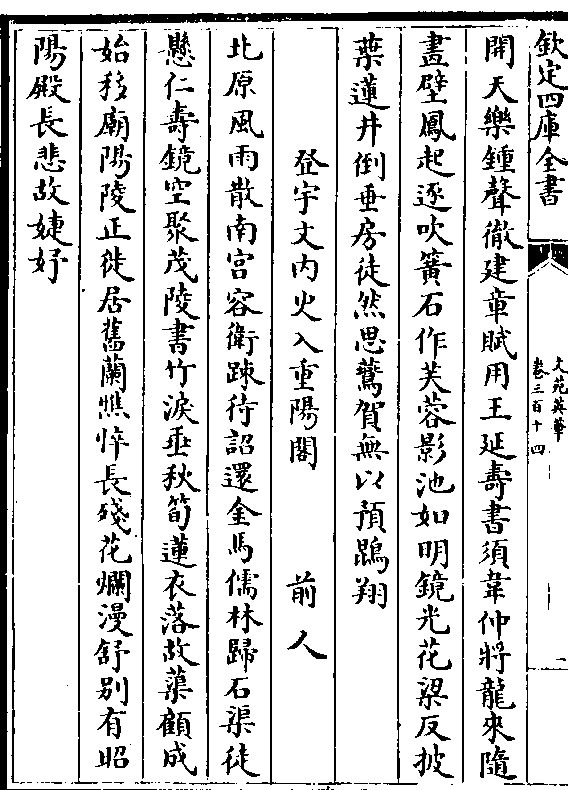 欽定四庫全書
文苑英華
卷三百十四
一
開天樂鍾聲徹建章賦用王延壽書須韋仲將龍來隨
畫壁鳳起逐吹簧石作芙蓉影池如明鏡光花梁反披
葉蓮井倒垂房徒然思鷰賀無以預鵾翔
登宇文内火入重陽閣　前人
北原風雨散南宫容衛踈待詔還金馬儒林歸石渠徒
懸仁壽鏡空聚茂陵書竹淚垂秋筍蓮衣落故蕖顧成
始移廟陽陵正徙居舊蘭憔悴長殘花爛漫舒别有昭
陽殿長悲故婕妤